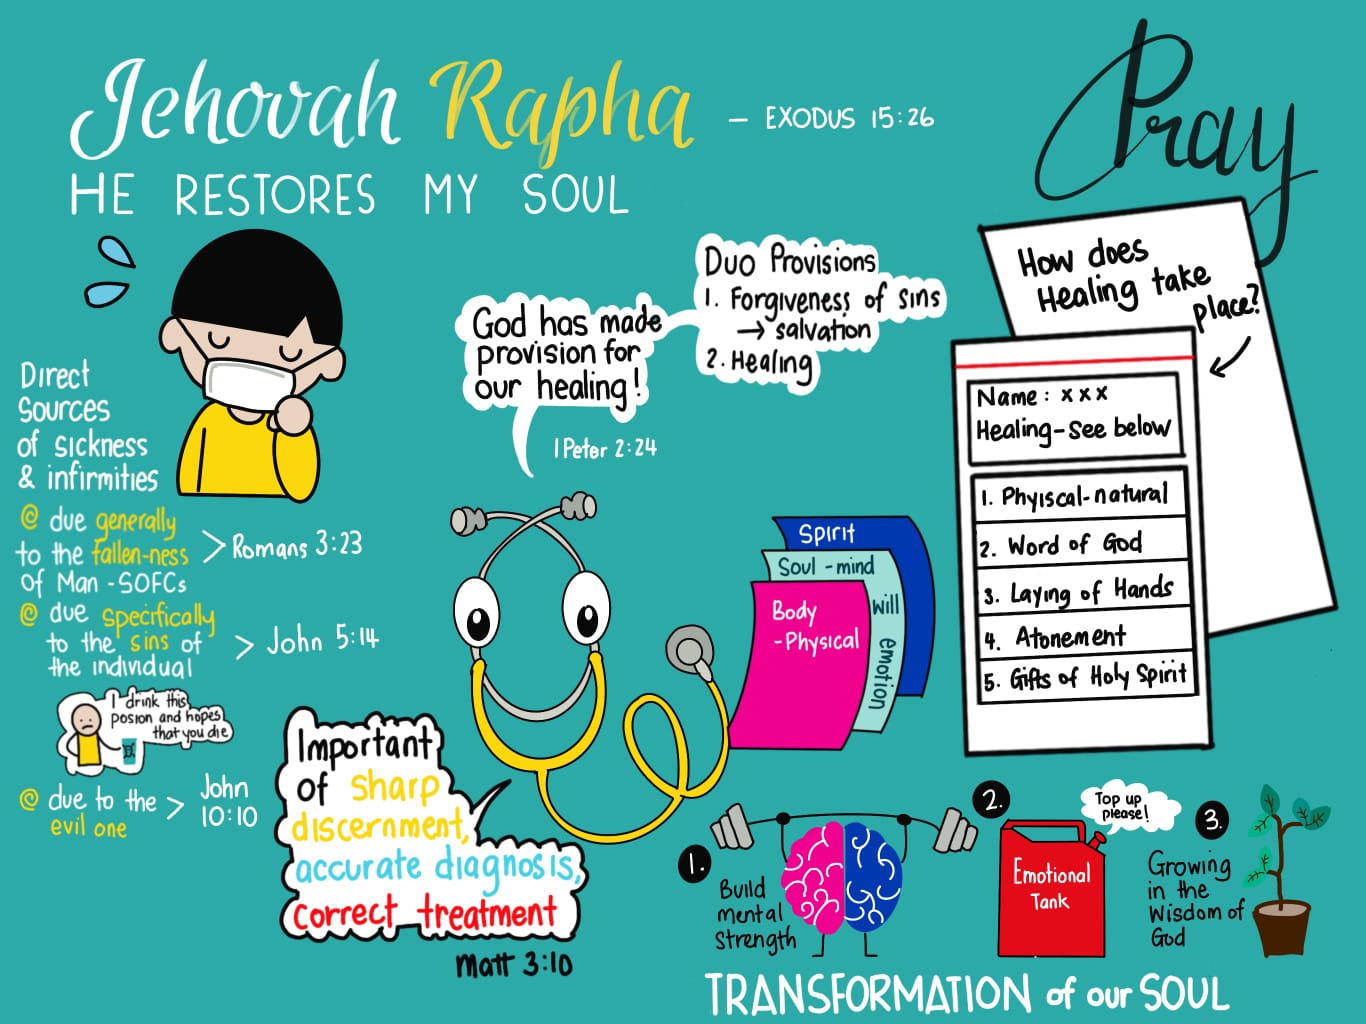 Jehovah Rapha – EXODUS 15:26
HE RESTORES MY SOUL
Pray
Direct
Sources
of sickness
& infirmities
@ due generally
to the fallen-ness
of Man - SOFCs
> Romans 3:23
@ due specifically
to the sins of
the individual
> John 5:14
I drink this
posion and hopes
that you die
@ due to the
evil one
> John
10:10
God has made
provision for
our healing!
1 Peter 2:24
Duo Provisions
1. Forgiveness of sins
→ salvation
2. Healing
Important
of sharp
discernment,
accurate diagnosis,
correct treatment
Matt 3:10
Spirit
Soul - mind
will
emotion
Body
- Physical
How does
Healing take
place?
Name : x x x
Healing - See below
1. Phyiscal - natural
2. Word of God
3. Laying of Hands
4. Atonement
5. Gifts of Holy Spirit
1.
Build
mental
Strength
2.
Top up
please!
Emotional
Tank
3.
Growing
in the
Wisdom of
God
TRANSFORMATION of our SOUL